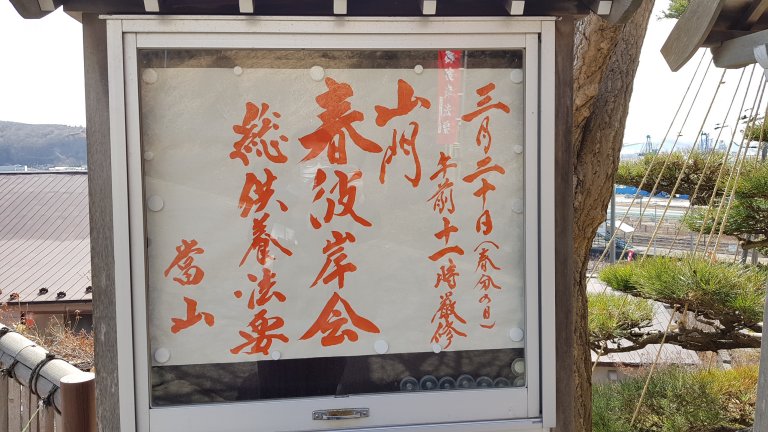 三月二十日(春分の日)
午前十一時厳修
山門
春彼岸会
総供養法要
當山